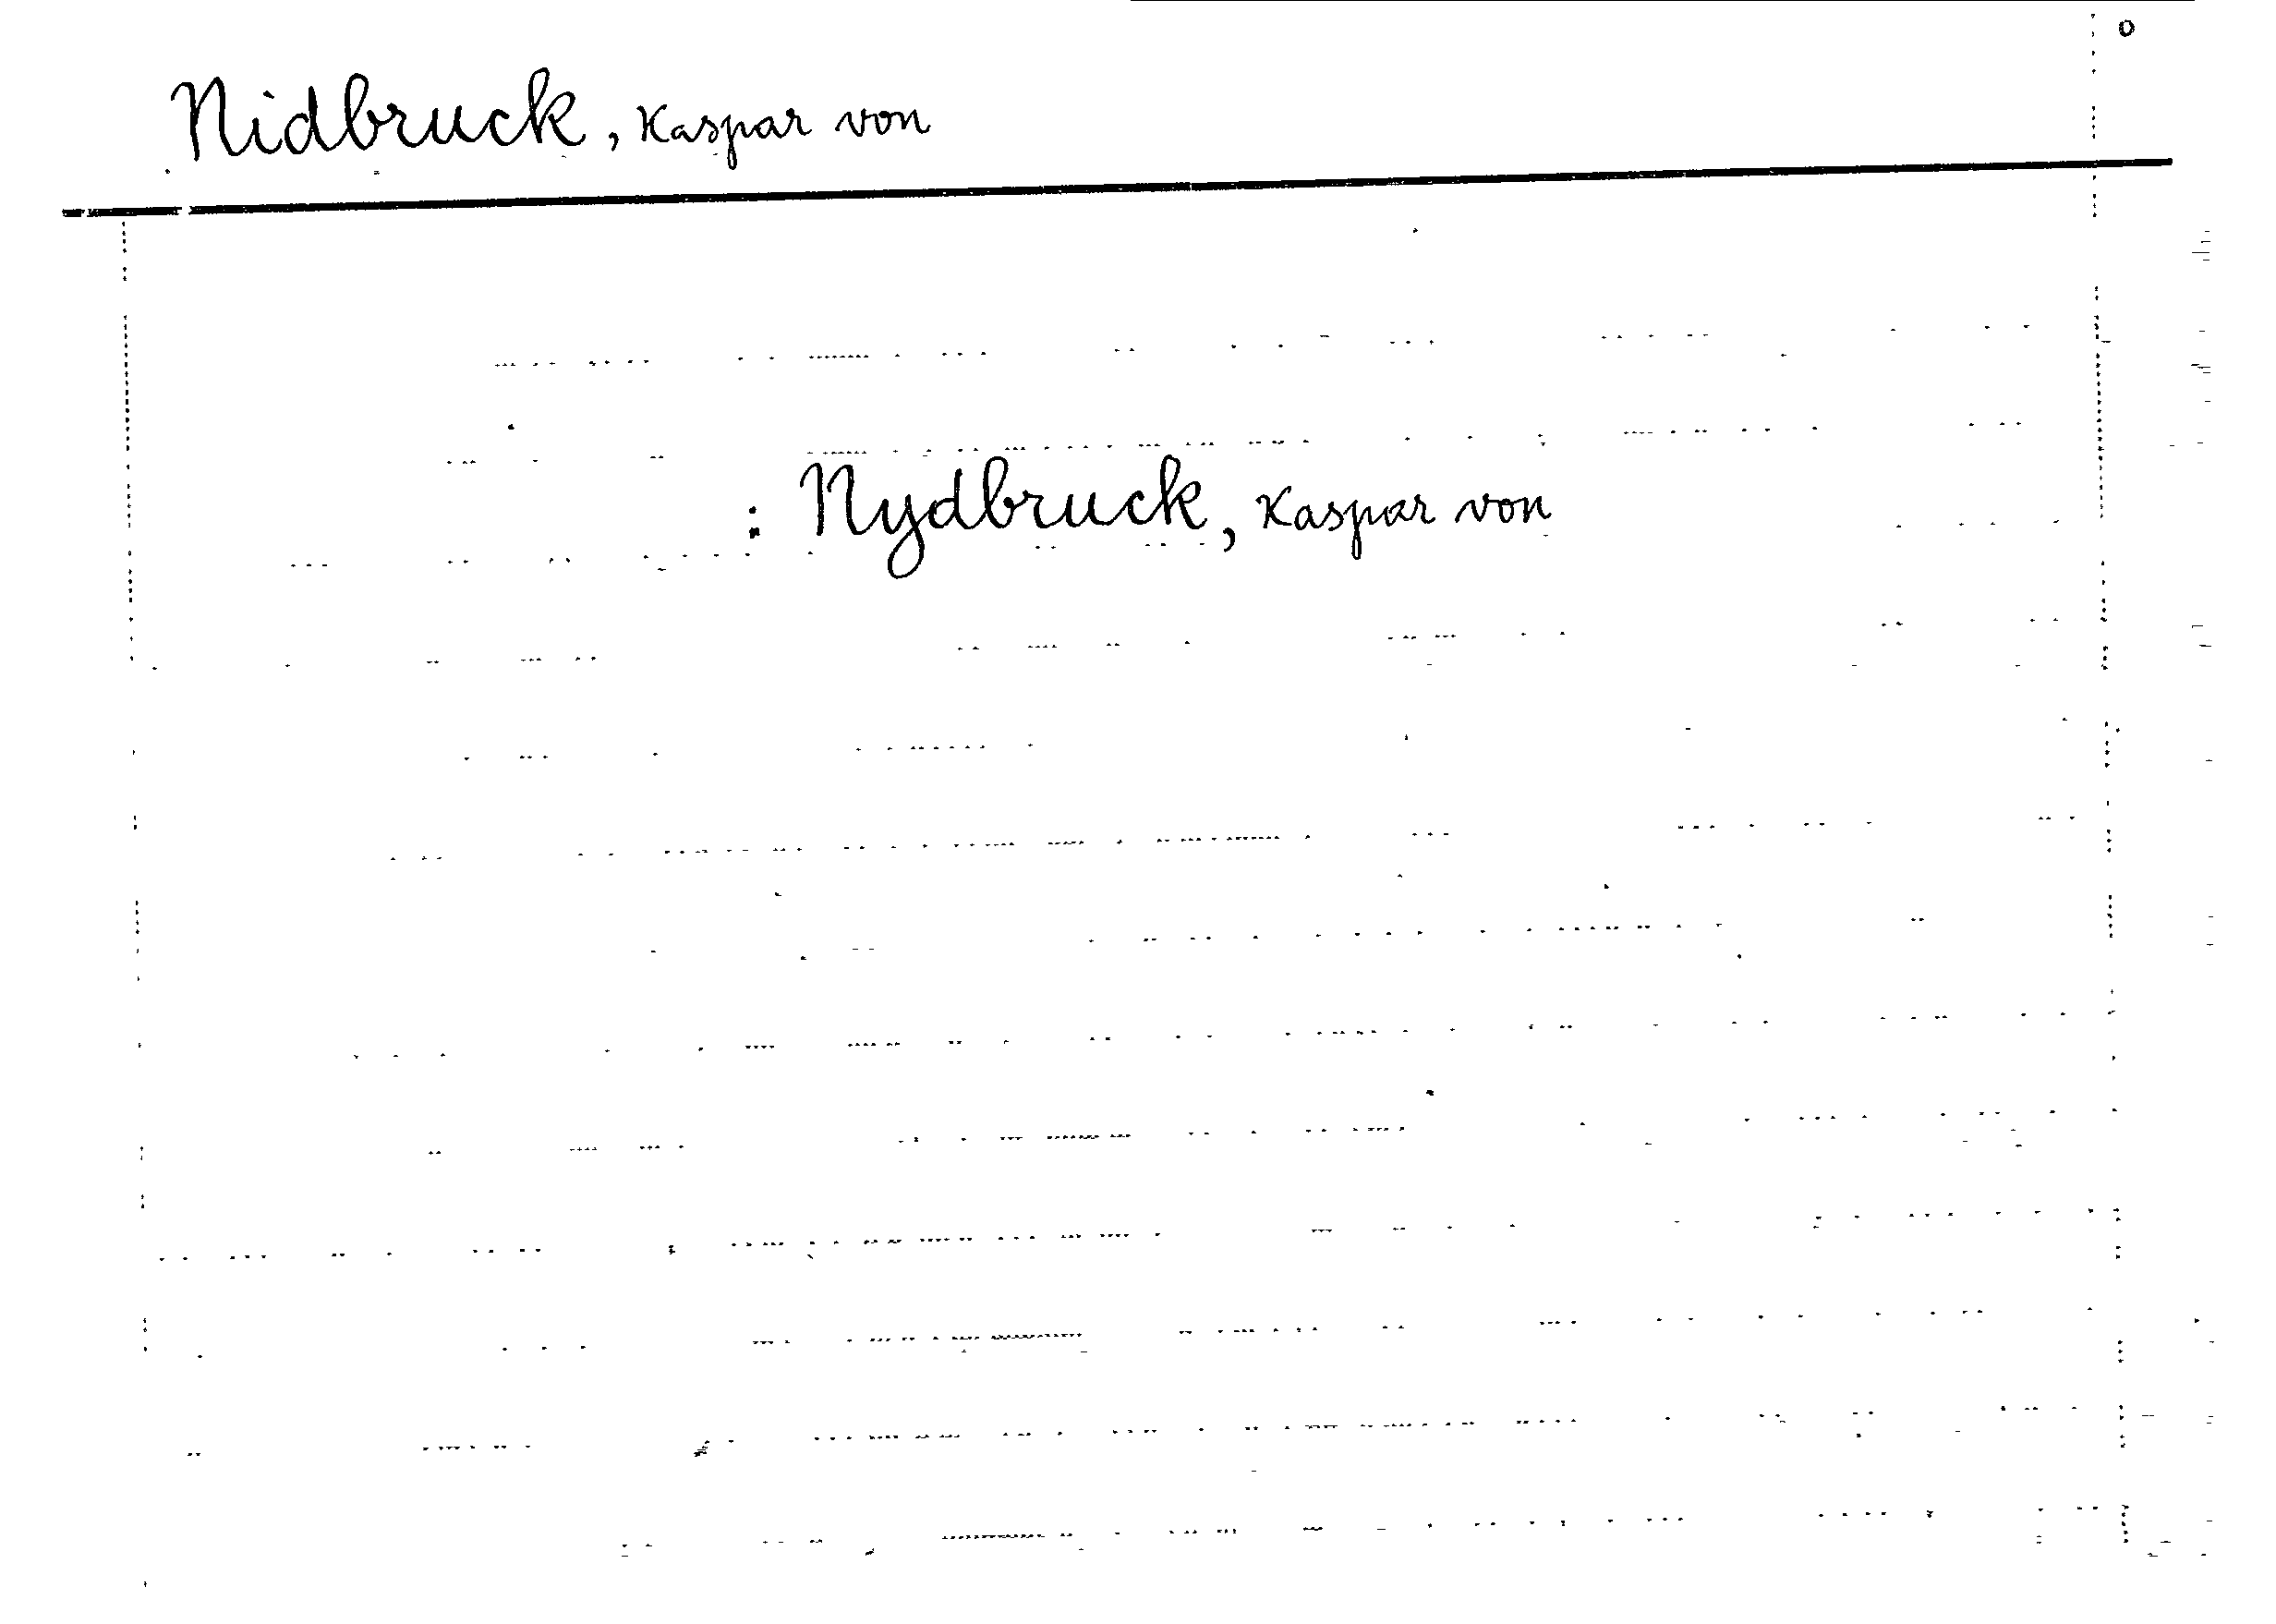 Nidbruck, Kaspar von
: Nydbruck, Kaspar von